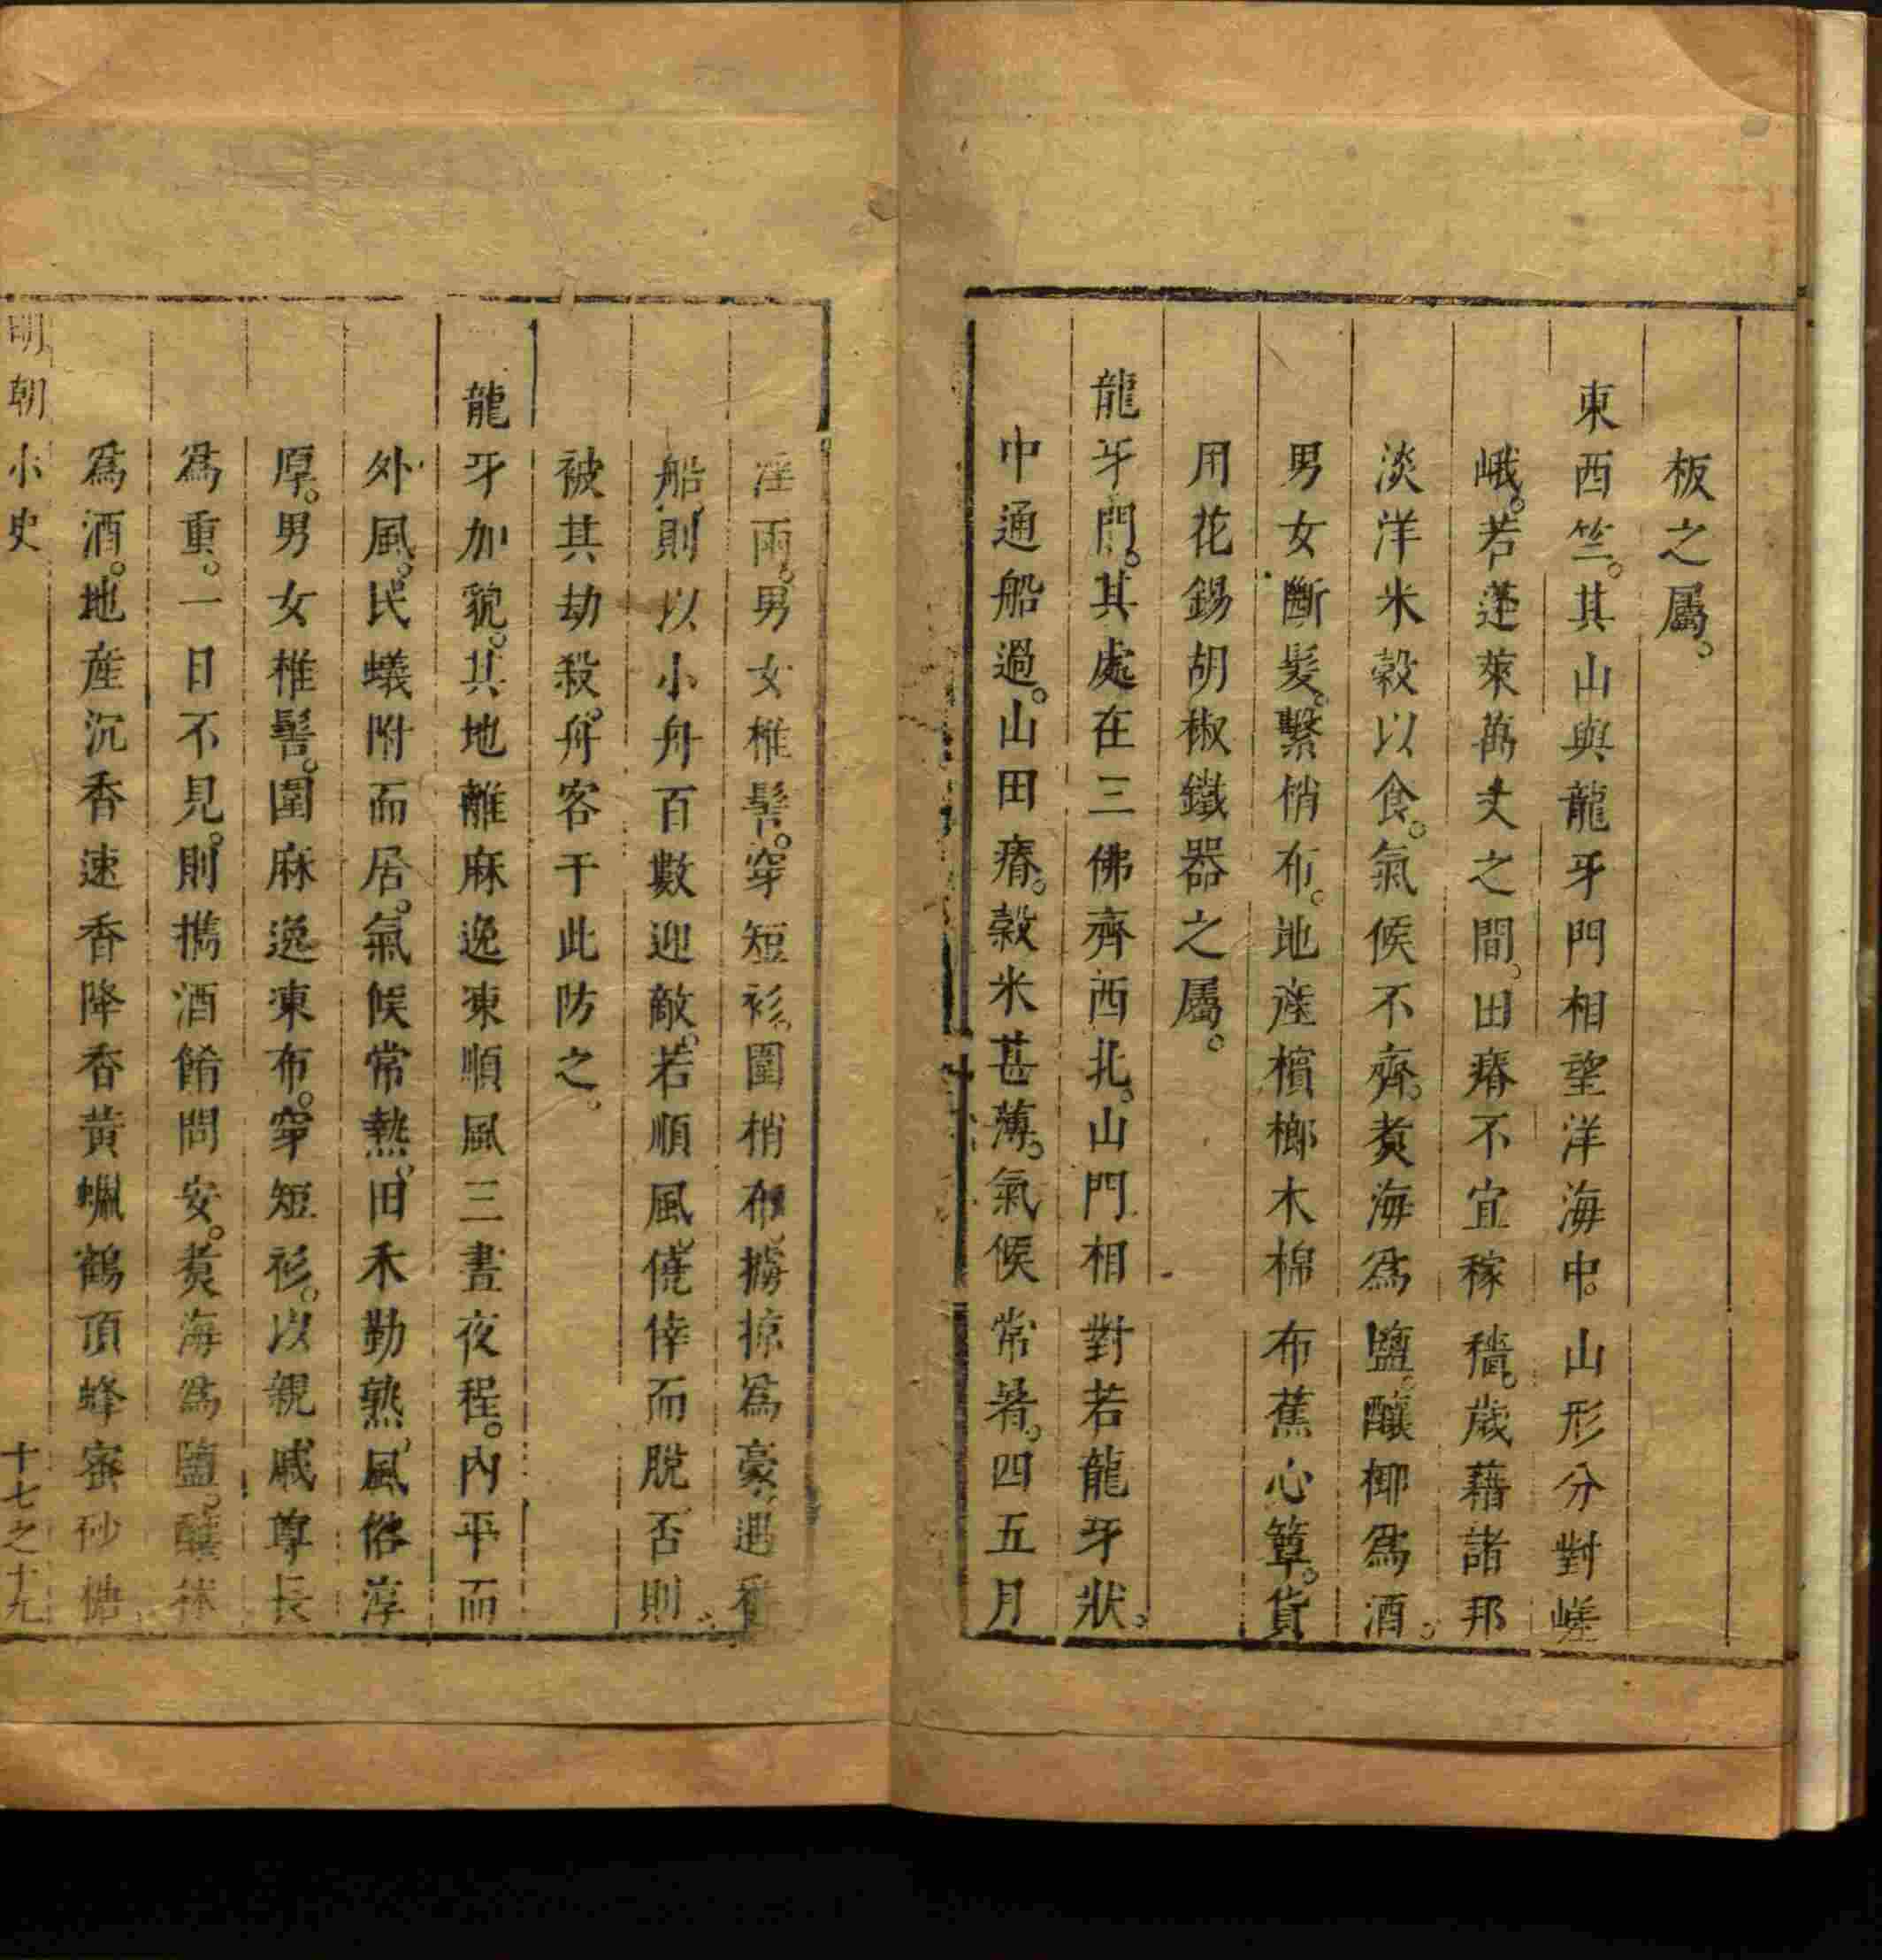 板之屬。
東西竺。其山與龍牙門相望洋海中。山形分對嵯
峨。若蓬萊萬丈之間。田瘠不宜稼穡。歲藉諸邦
淡洋米穀以食。氣候不齊。煑海爲鹽。釀椰爲酒。
男女斷髮。繫梢布。地產檳榔木棉布蕉心簟。貨
用花錫胡椒鐵器之屬。
龍牙門。其處在三佛齊西北。山門相對若龍牙狀。
中通船過。山田瘠。穀米甚薄。氣候常暑。四五月
淫雨。男女椎髻。穿短衫。圍梢布。擄掠爲豪。遇番
船。則以小舟百數迎敵。若順風。僥倖而脫。否則
被其劫殺。舟客于此防之。
龍牙加貌。其地離麻逸凍順風三晝夜程。內平而
外風。民蟻附而居。氣候常熱。田禾勤熟。風俗淳
厚。男女椎髻。圍麻逸凍布。穿短衫。以親戚尊長
爲重。一日不見。則攜酒餚問安。煑海爲鹽。釀秫
爲酒。地產沉香速香降香黃蠟鶴頂蜂蜜砂糖
明朝小史 十七之十九